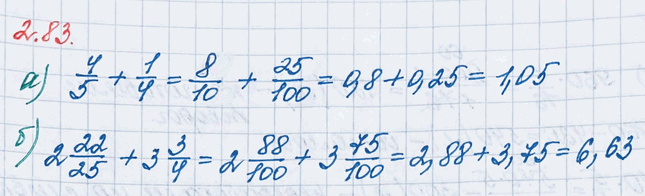 2.83.
а) 4/5 + 1/4 = 8/10 + 25/100 = 0,8 + 0,25 = 1,05
б) 2 22/25 + 3 3/4 = 2 88/100 + 3 75/100 = 2,88 + 3,75 = 6,63